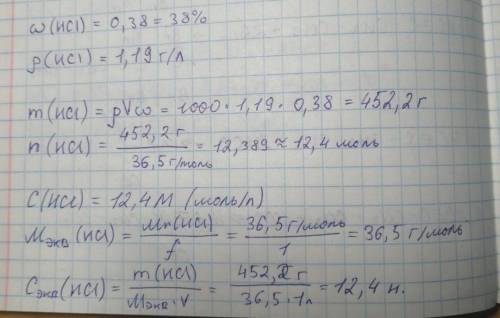 ω(HCl) = 0,38 = 38%
ρ(HCl) = 1,19 г/л
m(HCl) = ρVω = 1000 · 1,19 · 0,38 = 452,2 г
n(HCl) = 452,2 г / 36,5 г/моль = 12,389 ≈ 12,4 моль
C(HCl) = 12,4 М (моль/л)
Мэкв (HCl) = Mr(HCl) / f = 36,5 г/моль / 1 = 36,5 г/моль
Сэкв (HCl) = m(HCl) / Мэкв · V = 452,2 г / 36,5 · 1л = 12,4 н.